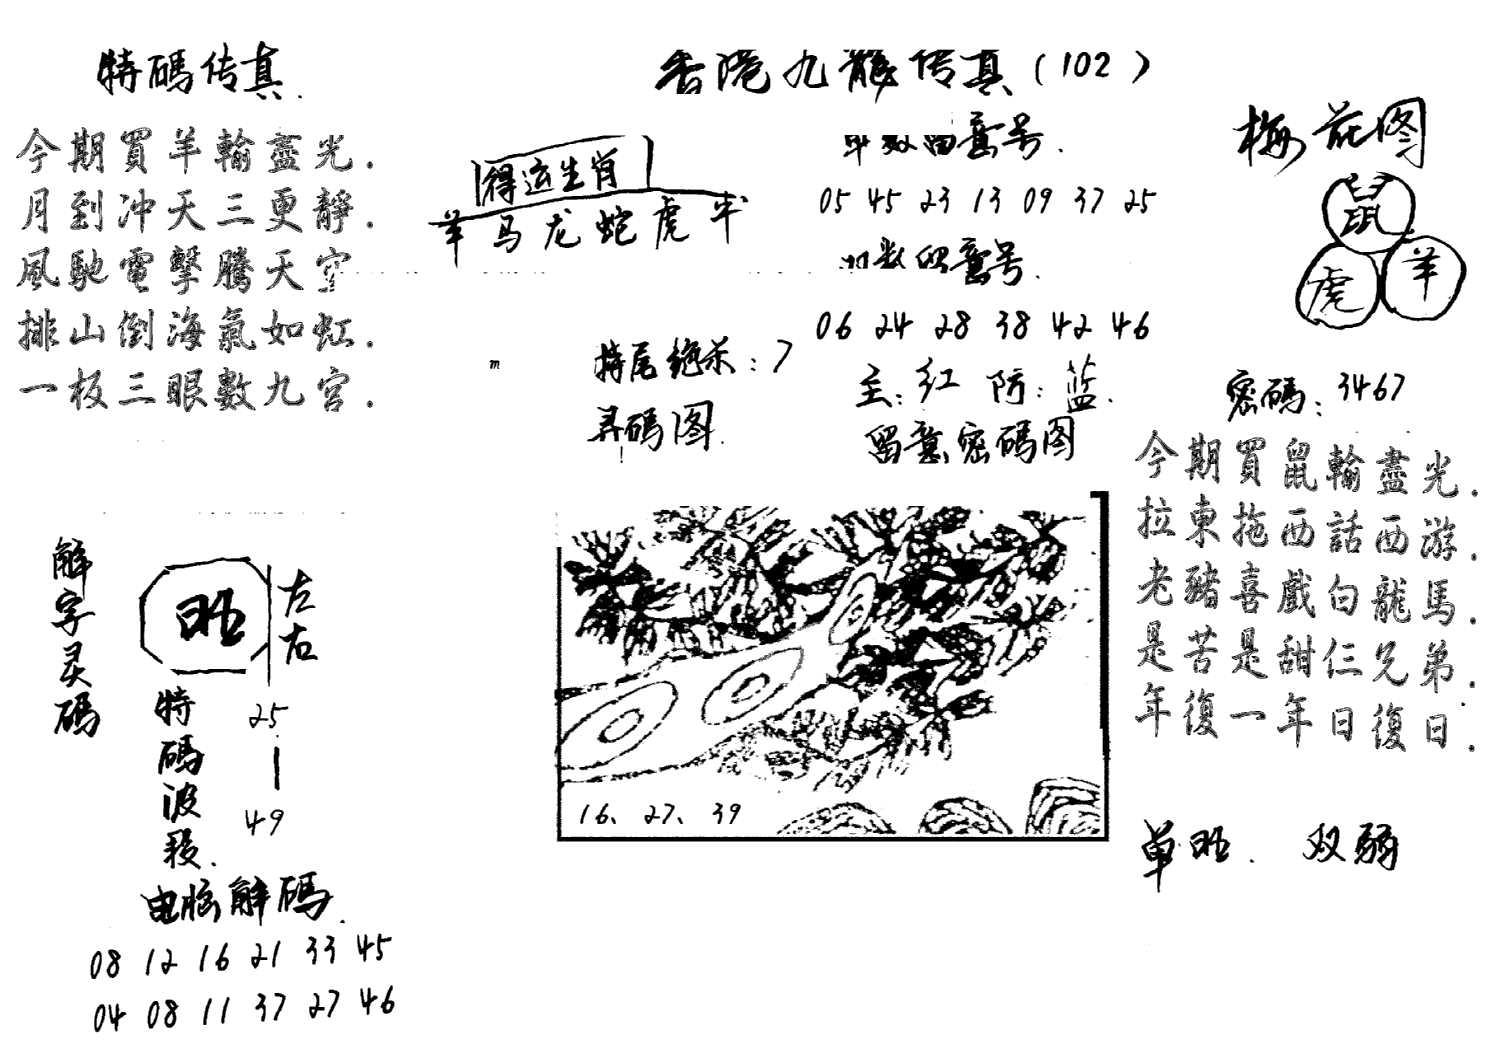 特碼传真.
香港九龍传真(102)
今期買羊輸盡光.
月到沖天三更靜.
風馳電擊騰天空
排山倒海氣如虹.
一板三眼數九宮.
得运生肖
羊马龙蛇虎牛
单数留意号.
05 45 23 13 09 37 25
双数留意号.
06 24 28 38 42 46
特尾绝杀:7
寻碼图.
主:红 防:蓝.
留意密碼图
梅花图
鼠
虎 羊
密碼:3467
今期買鼠輸盡光.
拉東拖西話西游.
老豬喜戲白龍馬.
是苦是甜仨兄弟.
年復一年日復日.
解字灵碼
旺
左右
特碼波段.
25
|
49
16、27、39
单旺. 双弱
电脑解碼.
08 12 16 21 33 45
04 08 11 37 27 46